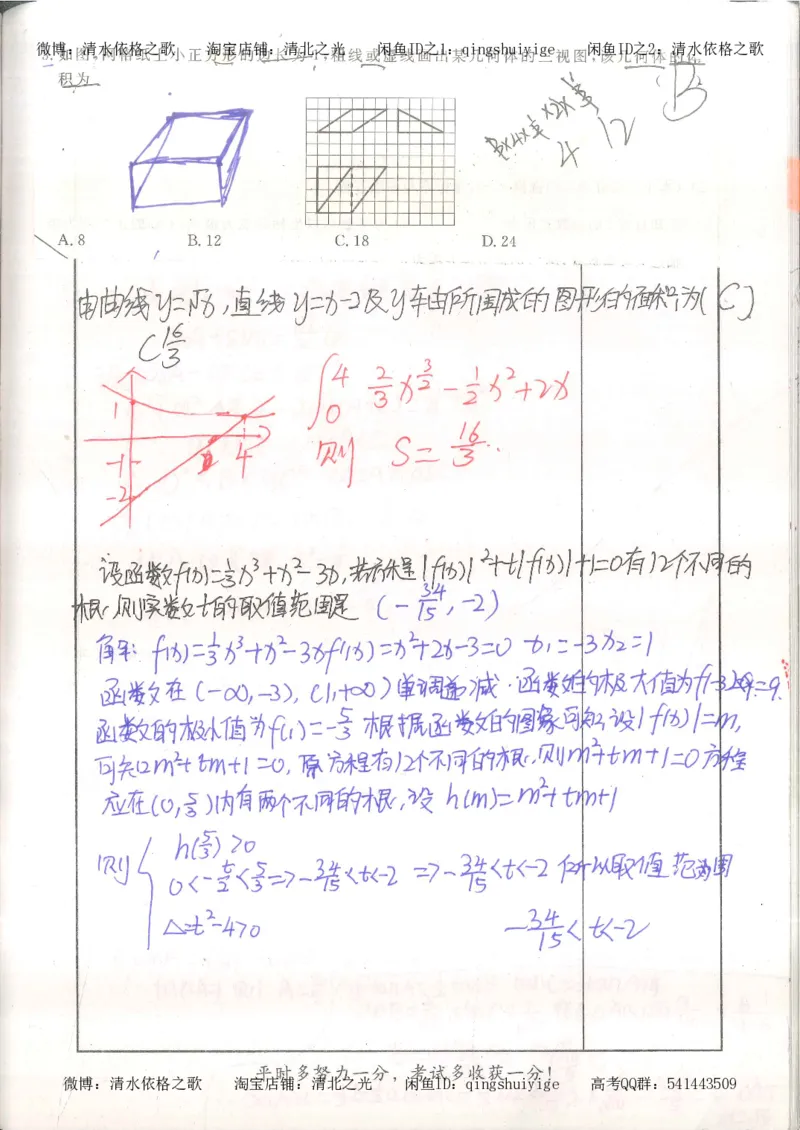 微博：清水依格之歌 淘宝店铺：清北之光 闲鱼ID之1：qingshuiyige 闲鱼ID之2：清水依格之歌
如图，网格纸上小正方形的边长为1，粗线或虚线画出某几何体的三视图，该几何体的体
积为
B
4 12
A.8 B.12 C.18 D.24
由曲线y=√x，直线y=x-2及y轴所围成的图形的面积为(C)
C 16/3
∫₀⁴ 2/3 x^(3/2) - 1/2 x² + 2x
则 S = 16/3
1
-1
2 4
-2
设函数f(x)=1/3x³+x²-3x，若方程|f(x)|²+t|f(x)|+1=0有12个不同的
根，则实数t的取值范围是 (-34/15, -2)
解：f(x)=1/3x³+x²-3x f'(x)=x²+2x-3=0 x₁=-3 x₂=1
函数在(-∞,-3)，(1,+∞)单调递减．函数的极大值为f(-3)=9.
函数的极小值为f(1)=-5/3 根据函数的图象可知，设|f(x)|=m，
可知m²+tm+1=0，原方程有12个不同的根，则m²+tm+1=0方程
应在(0,5/3)内有两个不同的根，设 h(m)=m²+tm+1
则 { h(5/3)>0
0<-t/2<5/3 => -34/15<t<-2 => -34/15<t<-2 所以取值范围
△=t²-4>0 -34/15<t<-2
平时多努力一分，考试多收获一分！
微博：清水依格之歌 淘宝店铺：清北之光 闲鱼ID：qingshuiyige 高考QQ群：541443509